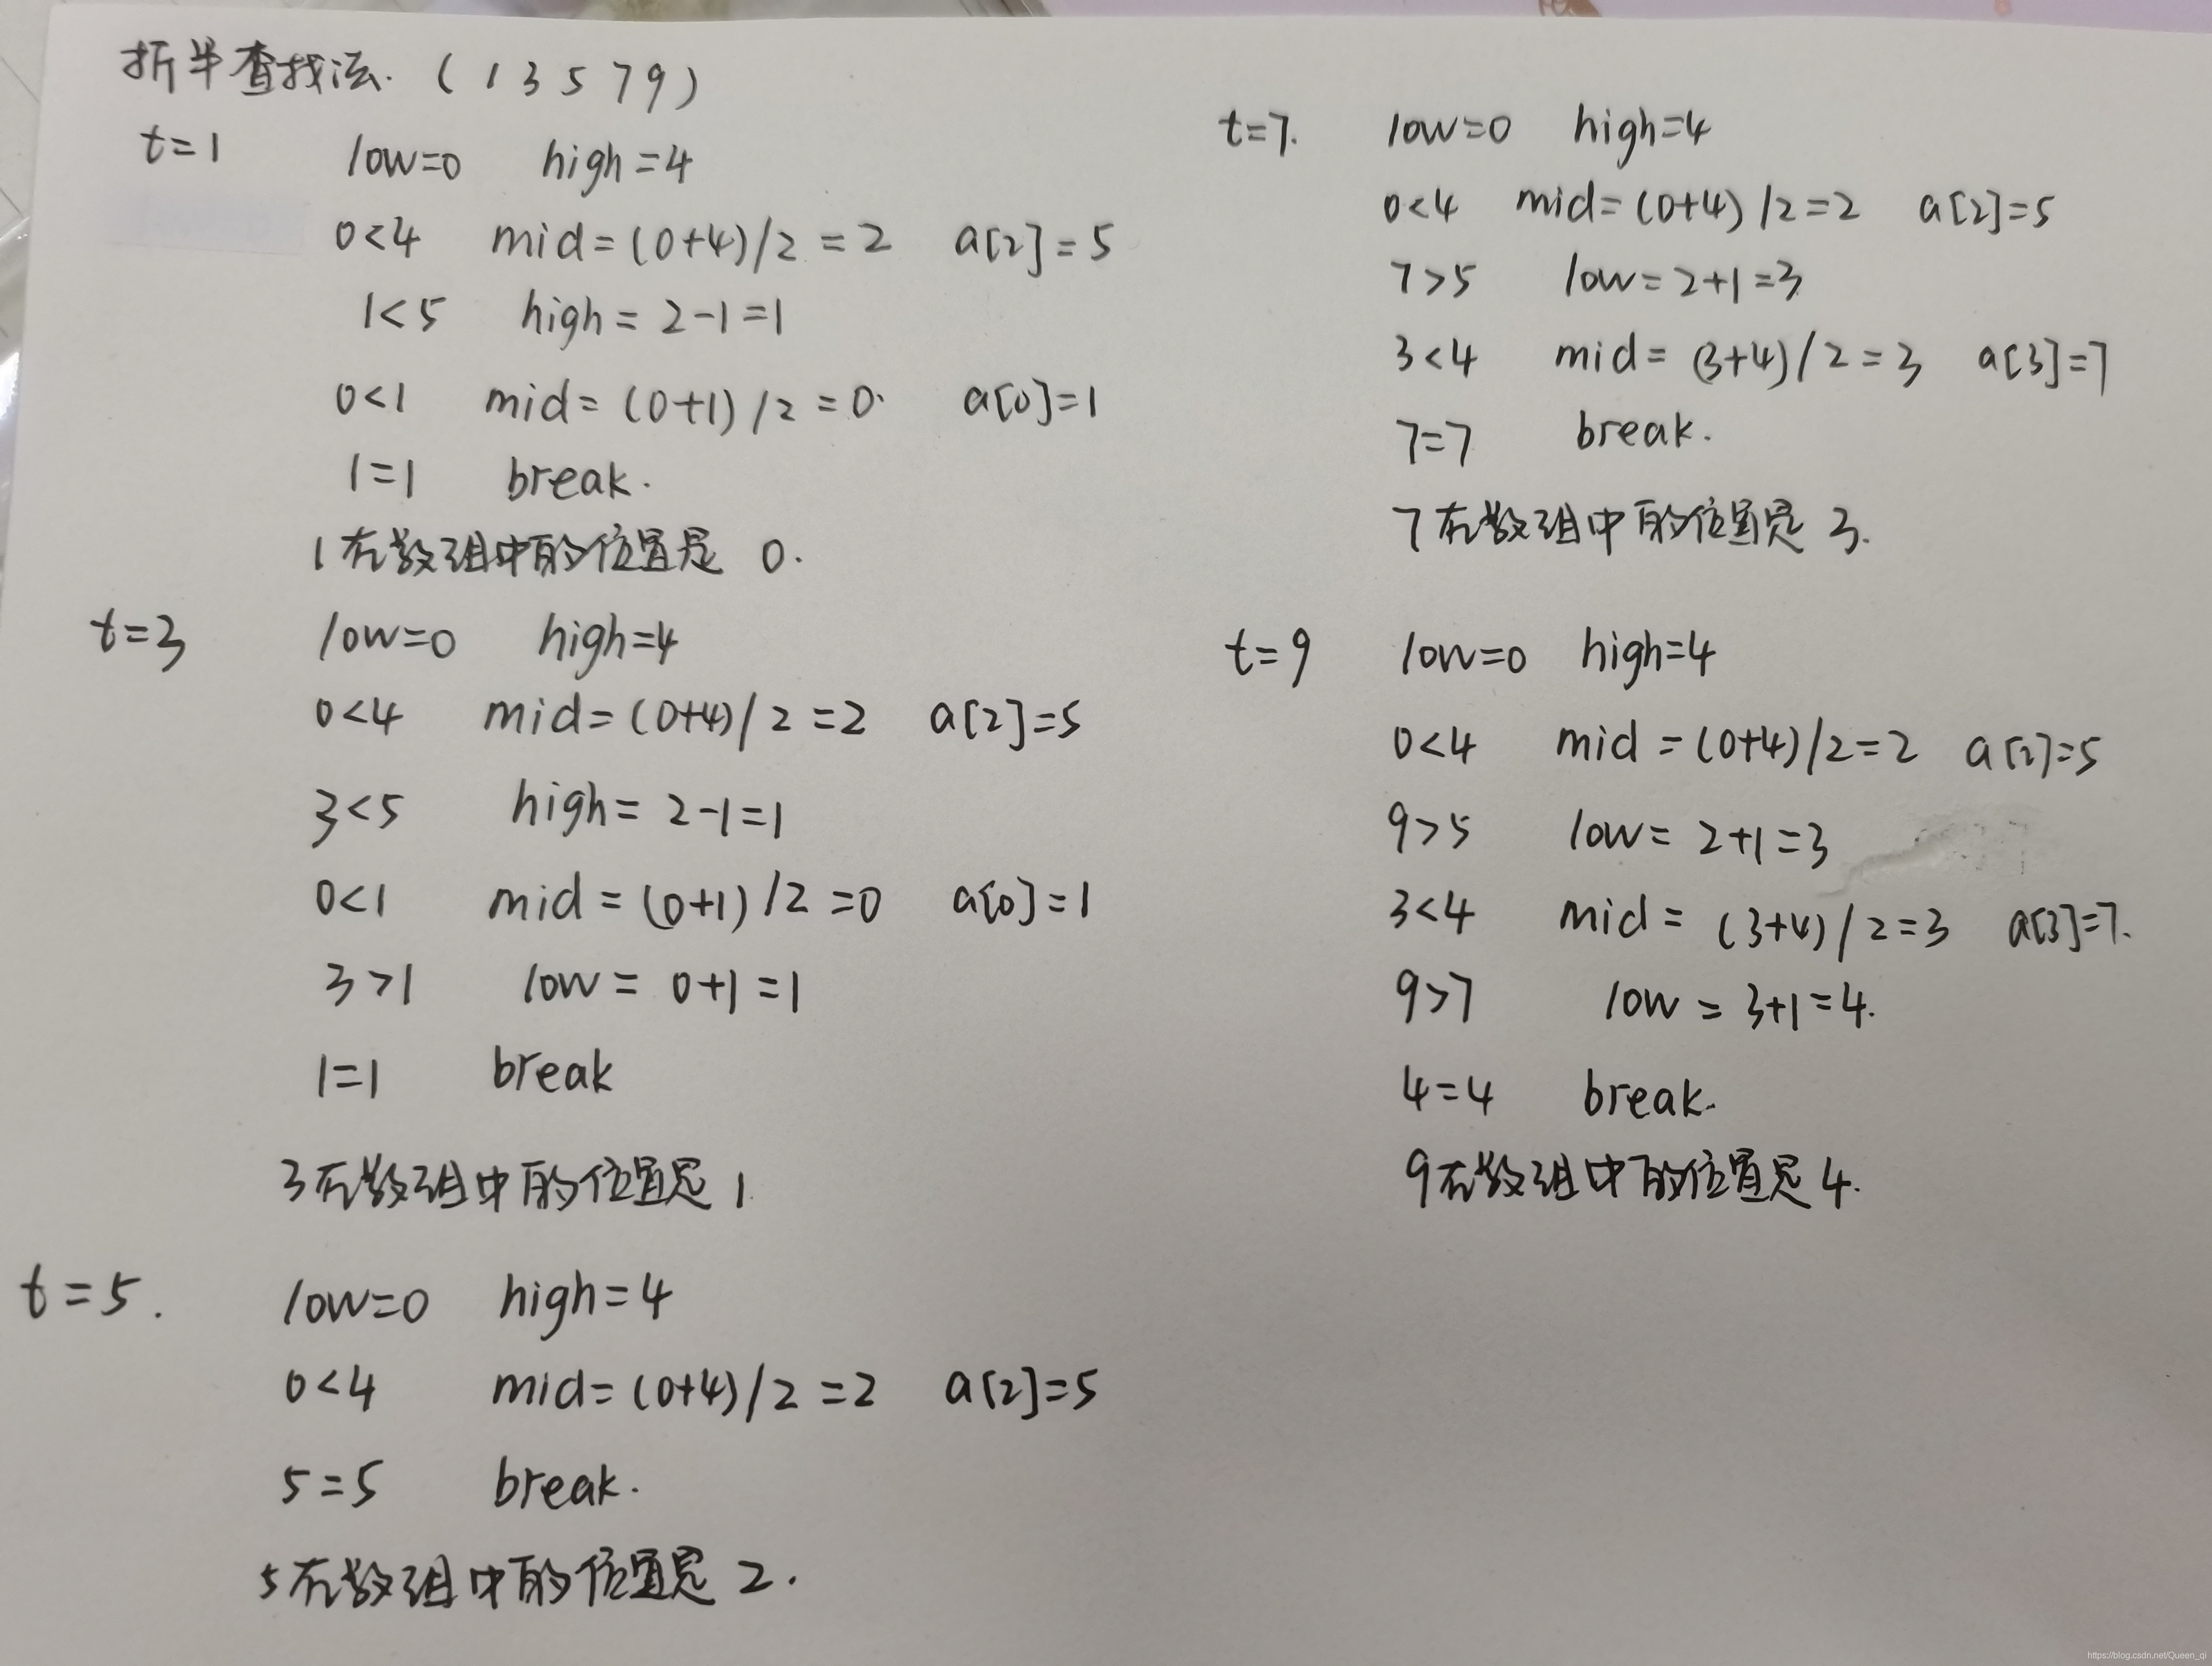 折半查找法. (1 3 5 7 9)
t=1 low=0 high=4
0<4 mid=(0+4)/2=2 a[2]=5
1<5 high=2-1=1
0<1 mid=(0+1)/2=0. a[0]=1
1=1 break.
1在数组中的位置是 0.
t=3 low=0 high=4
0<4 mid=(0+4)/2=2 a[2]=5
3<5 high=2-1=1
0<1 mid=(0+1)/2=0 a[0]=1
3>1 low=0+1=1
1=1 break
3在数组中的位置是 1
t=5. low=0 high=4
0<4 mid=(0+4)/2=2 a[2]=5
5=5 break.
5在数组中的位置是 2.
t=7. low=0 high=4
0<4 mid=(0+4)/2=2 a[2]=5
7>5 low=2+1=3
3<4 mid=(3+4)/2=3 a[3]=7
7=7 break.
7在数组中的位置是 3.
t=9 low=0 high=4
0<4 mid=(0+4)/2=2 a[2]=5
9>5 low=2+1=3
3<4 mid=(3+4)/2=3 a[3]=7.
9>7 low=3+1=4.
4=4 break.
9在数组中的位置是4.
https://blog.csdn.net/Queen_qi